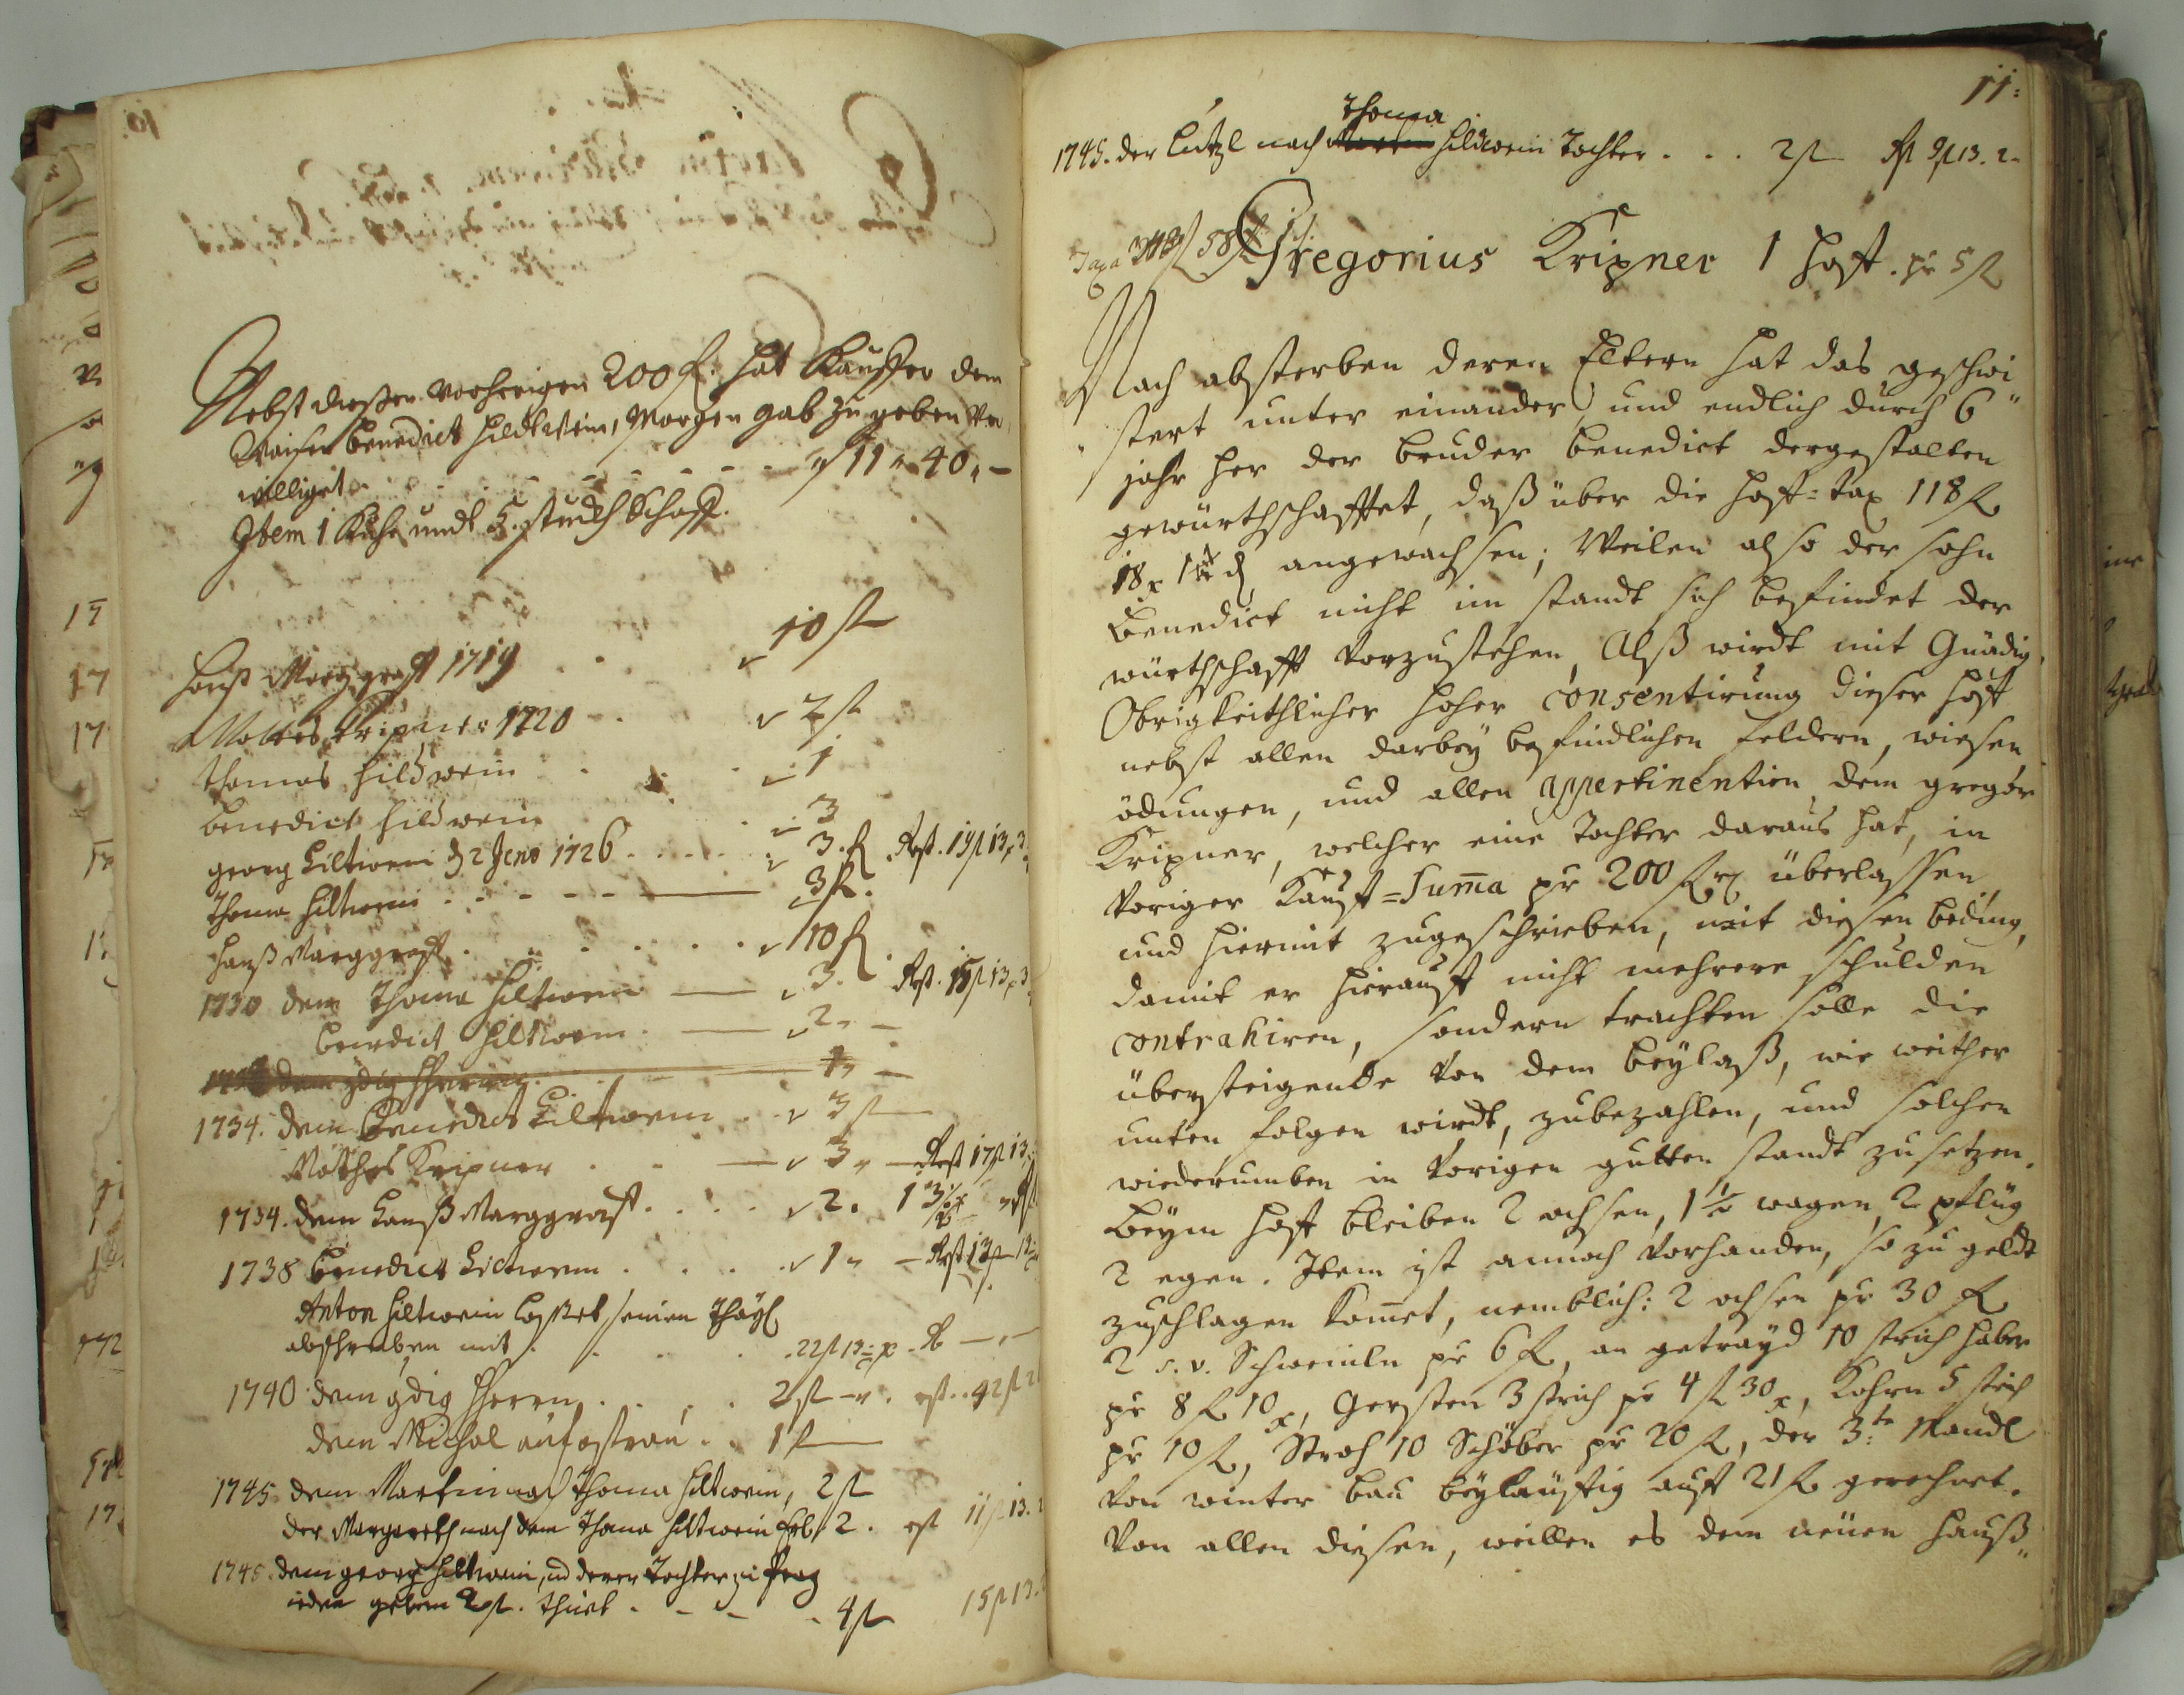 10.
Nebst dießen vorherigen 200 f. hat Kauffer dem
Waisen Benedict Hildtwein, Morgen gab zu geben ver
williget . - - - - - - - 11 " 40 " -
Item 1 Kuhe undt 5. stuckh Schaff.
Hanß Marggraff 1719 . . . 10 fl
Mattes Kripner 1720 . . 2 fl
Thomas Hildwein . . . 1
Benedict Hildwein . . 3
Georg Hiltwein d 2 Jeno 1726 . . . . . 3. fl Rest. 19 fl 13 x 3
Thoma Hiltwein . . - - - 3 fl.
Hanß Marggraff . . . . . . 10 fl
1730 dem Thoma Hiltwein — 3. Rest. 15 fl 13 x 3
Benedict Hiltwein . — 2 " -
dem gdig Herrn
1734. dem Benedict Hiltwein . . 3 fl
Matthes Kripner . . — 3 " — Rest 17 fl 13
1734. dem Hanß Marggraff . . . . 2 . 13
1738 Benedict Hiltwein . . . . 1 " — Rest 13 fl 13
Anton Hiltwein lasset seinen Thayl
abschreiben mit . . . . 22 fl 13
1740 dem gdig Herrn . . . . 2 fl
dem Michal . . 1 fl
1745 dem Martin nach Thoma Hiltwein, 2 fl
der Margareth nach dem Thoma Hiltwein Erb. 2 . rest 11 fl 13.
1745. dem Georg Hiltwein, und derer Tochter zu Prag
jeden gebern 2 fl. thuet . - - - . 4 fl 15 fl 13.
11:
Thoma
1745. der Lutzl nach Martin Hildwein Tochter . . . 2 fl Rest 9 fl 13. 2
Taxa
Gregorius Kripner 1 Hoff. pr 5 fl
Nach absterben deren Eltern hat das geschwi
" stert unter einander, und endlich durch 6 "
jahr her der Bruder Benedict dergestalten
gewürthschafftet, daß über die Hoff=tax 118 fl
18 x 1 d angewachsen; Weilen also der sohn
Benedict nicht im standt sich befindet der
würthschafft vorzustehen, Alß wirdt mit Gnädig.
Obrigkeithlicher hoher Consentirung dieser Hoff
nebst allen darbey befindlichen feldern, wiesen
ödungen, und allen appertinentien dem gregor
Kripner, welcher eine Tochter daraus hat, in
voriger Kauff=Suma pr 200 fl überlassen,
und hiermit zugeschrieben, mit diesen beding,
damit er hierauff nicht mehrere schulden
contrahiren, sondern trachten solle die
übersteigende von dem beylaß, wie weither
unten folgen wirdt, zubezahlen, und solchen
wiederumben in vorigen gutten standt zusetzen.
Beym Hoff bleiben 2 ochsen, 1 1/2 wagen, 2 pflüg
2 egen. Item ist annoch vorhanden, so zu geldt
zuschlagen komet, nemblich: 2 ochsen pr 30 fl
2 s. v. Schweinln pr 6 fl, an getrayd 10 strich haber
pr 8 fl 10 x, Gersten 3 strich pr 4 fl 30 x, Kohrn 5 strich
pr 10 fl, Stroh 10 Schöber pr 20 fl, der 3te Mandl
von winter bau beyläuffig auff 21 fl gerechnet.
Von allen diesen, weillen es dem neüen hauß "